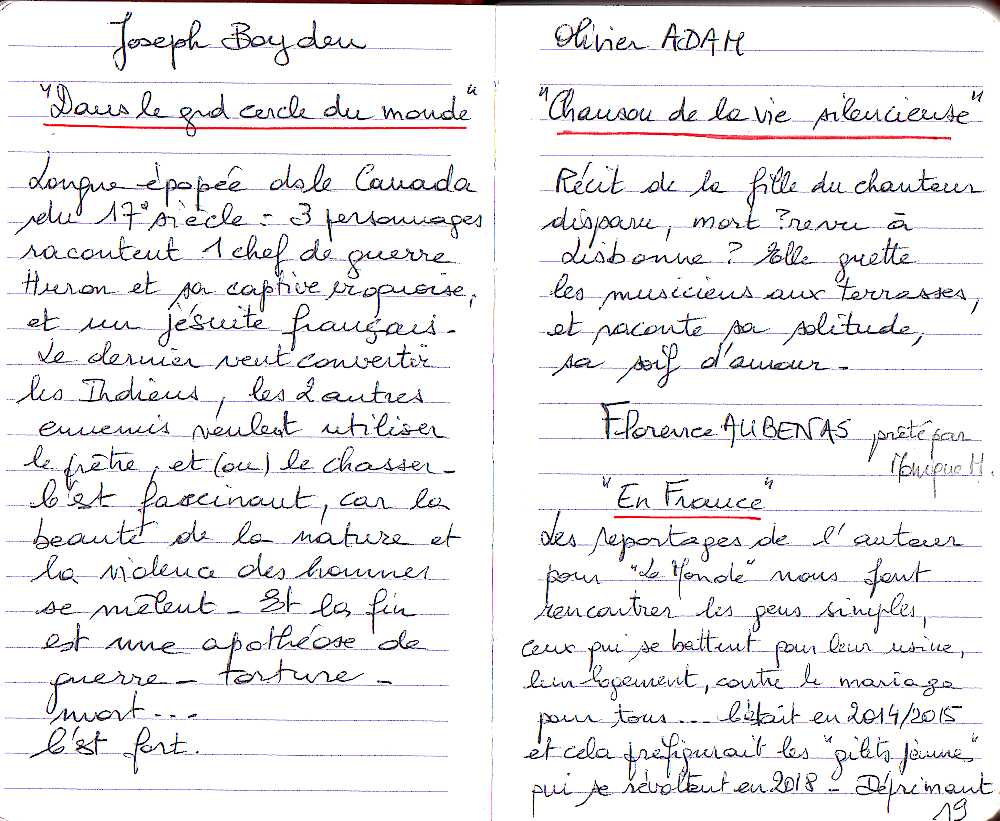 Joseph Boyden
"Dans le grd cercle du monde"
Longue épopée ds le Canada
du 17° siècle - 3 personnages
racontent 1 chef de guerre
Huron et sa captive iroquoise,
et un jésuite français.
Le dernier veut convertir
les Indiens, les 2 autres
ennemis veulent utiliser
le prêtre, et (ou) le chasser -
C'est fascinant, car la
beauté de la nature et
la violence des hommes
se mêlent - Et la fin
est une apothéose de
guerre - torture -
mort...
C'est fort.
Olivier ADAM
"Chanson de la vie silencieuse"
Récit de la fille du chanteur
disparu, mort ? revu à
Lisbonne ? Elle guette
les musiciens aux terrasses,
et raconte sa solitude,
sa soif d'amour -
Florence AUBENAS prêté par
Monique H.
"En France"
Les reportages de l'auteur
pour "Le Monde" nous font
rencontrer les gens simples,
ceux qui se battent pour leur usine,
leur logement, contre le mariage
pour tous... C'était en 2014/2015
et cela préfigurait les "gilets jaunes"
qui se révoltent en 2018 - Déprimant.
19